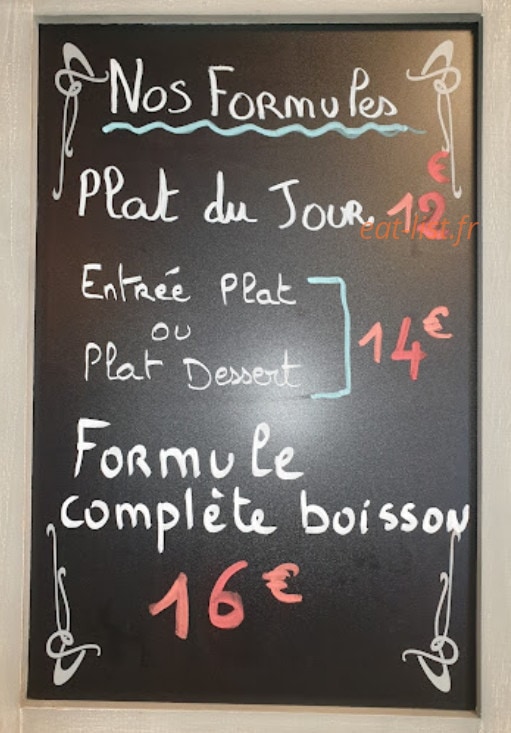 Nos Formules
Plat du Jour 12€
eat-list.fr
Entrée Plat
ou
Plat Dessert
14€
Formule
complète boisson
16€